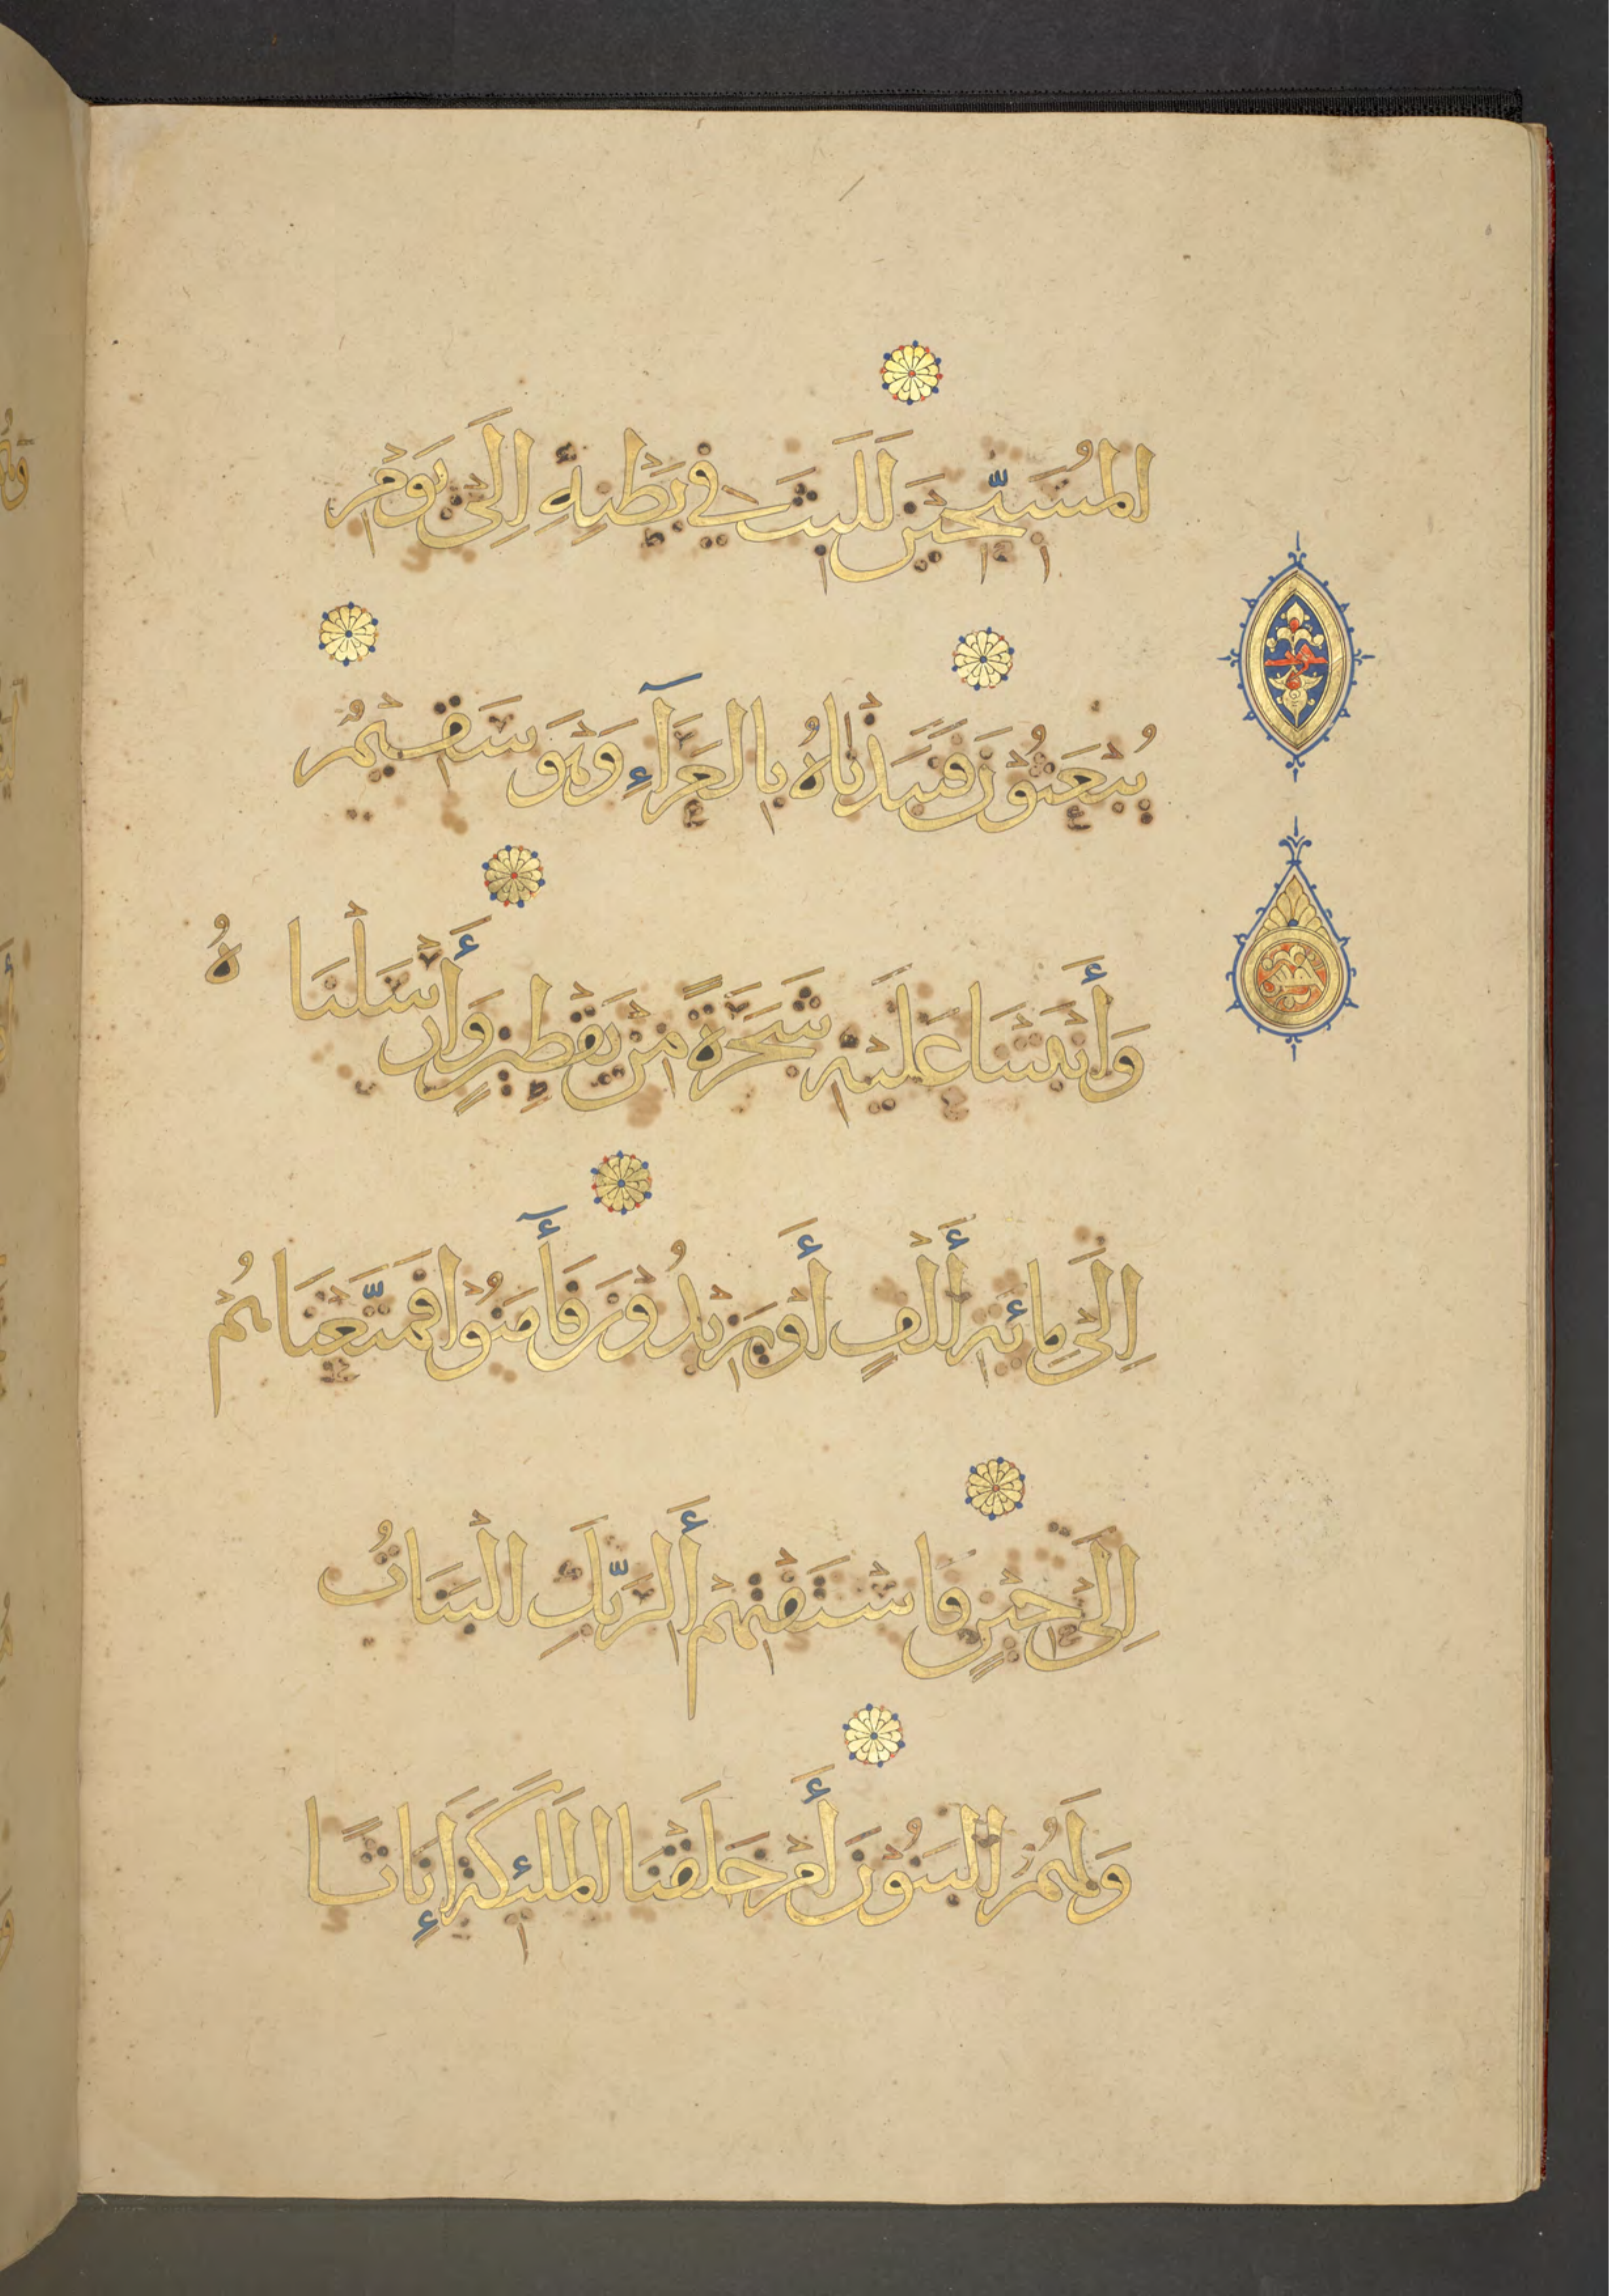 المُسَبِّحِيْنَ لَلَبِثَ فِي بَطْنِهِ إِلَىٰ يَوْمِ
يُبْعَثُوْنَ فَنَبَذْنَاهُ بِالْعَرَآءِ وَهْوَ سَقِيْمٌ
وَأَنْبَتْنَا عَلَيْهِ شَجَرَةً مِنْ يَقْطِيْنٍ وَأَرْسَلْنَاهُ
إِلَىٰ مِائَةِ أَلْفٍ أَوْ يَزِيْدُوْنَ فَآمَنُوْا فَمَتَّعْنَاهُمْ
إِلَىٰ حِيْنٍ فَاسْتَفْتِهِمْ أَلِرَبِّكَ الْبَنَاتُ
وَلَهُمُ الْبَنُوْنَ أَمْ خَلَقْنَا الْمَلَئِكَةَ إِنَاثًا